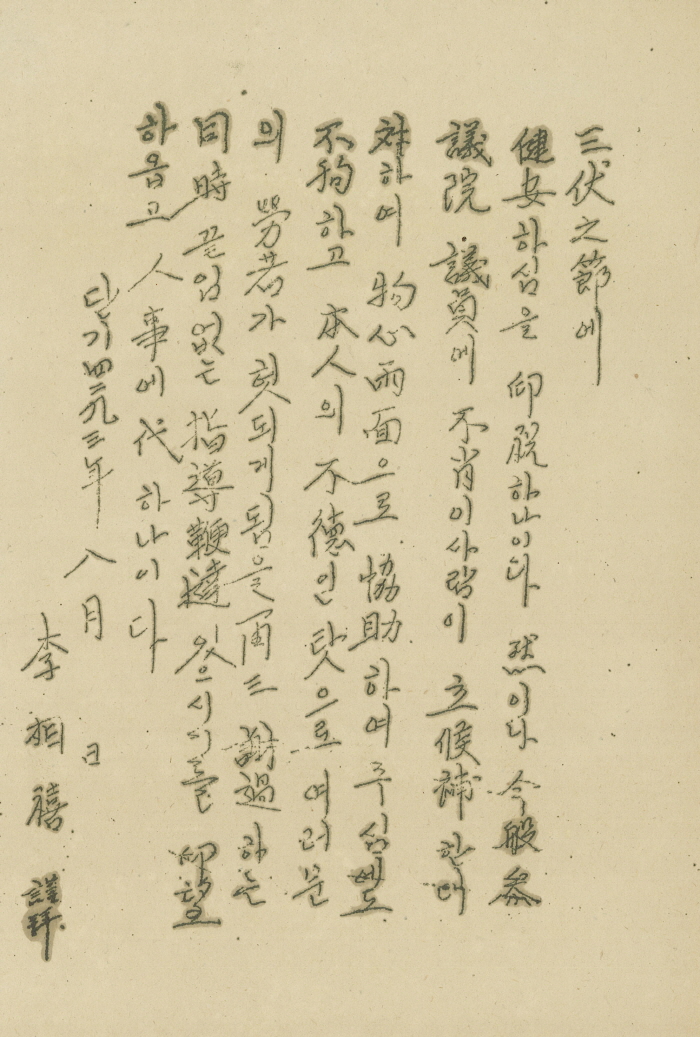 三伏之節에
健安하심을 仰祝하나이다 然이나 今般 參
議院 議員에 不肖이사람이 立候補한데
対하여 物心両面으로 協助하여주심에도
不拘하고 本人의 不德인탓으로 여러분
의 勞苦가 헛되게됨을 再三 謝過하는
同時 끝임없는 指導鞭撻있으시기를 仰望
하옵고 人事에代하나이다
단기四二九三年 八月 日
李相禧 謹拜